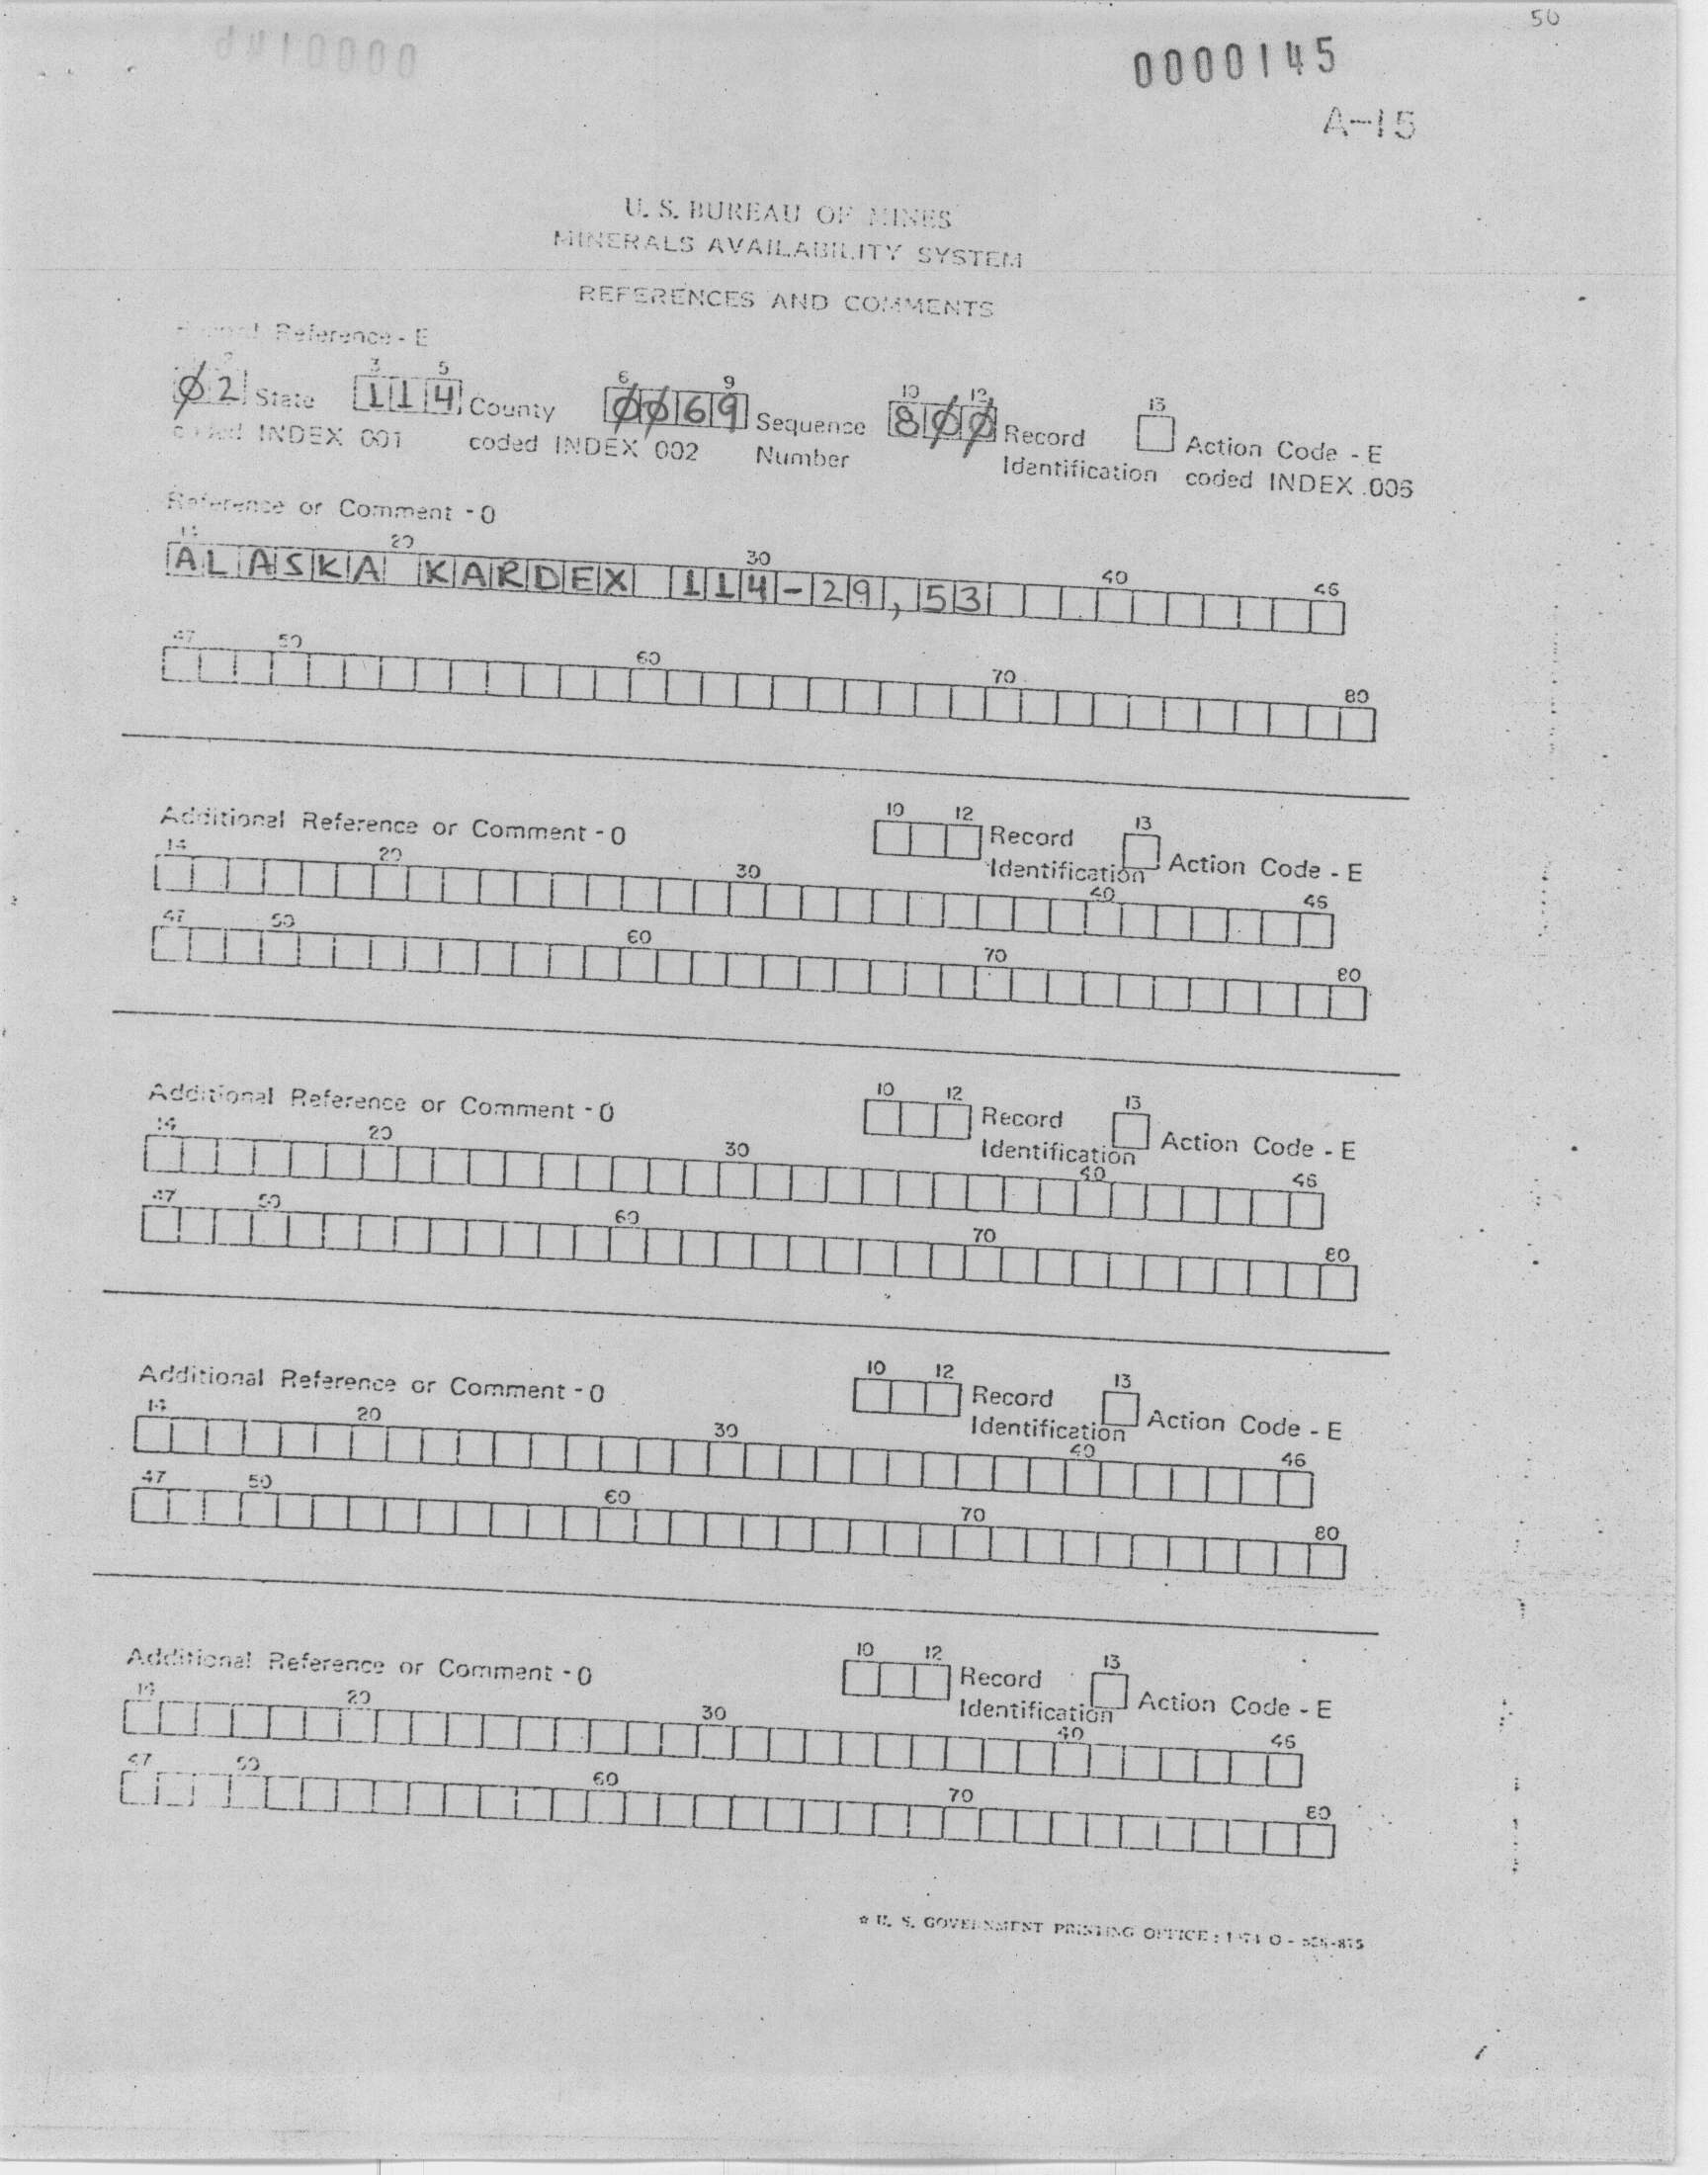 50
0000145
A-15
U. S. BUREAU OF MINES
MINERALS AVAILABILITY SYSTEM
REFERENCES AND COMMENTS
Reference - E
2 3 5 6 9 10 12 13
Ø2 State 114 County ØØ69 Sequence 8ØØ Record Action Code - E
coded INDEX 001 coded INDEX 002 Number Identification coded INDEX 006
Reference or Comment - O
14 20 30 40 46
ALASKA KARDEX 114-29,53
47 50 60 70 80
Additional Reference or Comment - O 10 12 Record 13 Action Code - E
Identification
14 20 30 40 46
47 50 60 70 80
Additional Reference or Comment - O 10 12 Record 13 Action Code - E
Identification
14 20 30 40 46
47 50 60 70 80
Additional Reference or Comment - O 10 12 Record 13 Action Code - E
Identification
14 20 30 40 46
47 50 60 70 80
Additional Reference or Comment - O 10 12 Record 13 Action Code - E
Identification
14 20 30 40 46
47 50 60 70 80
☆ U. S. GOVERNMENT PRINTING OFFICE : 1974 O -